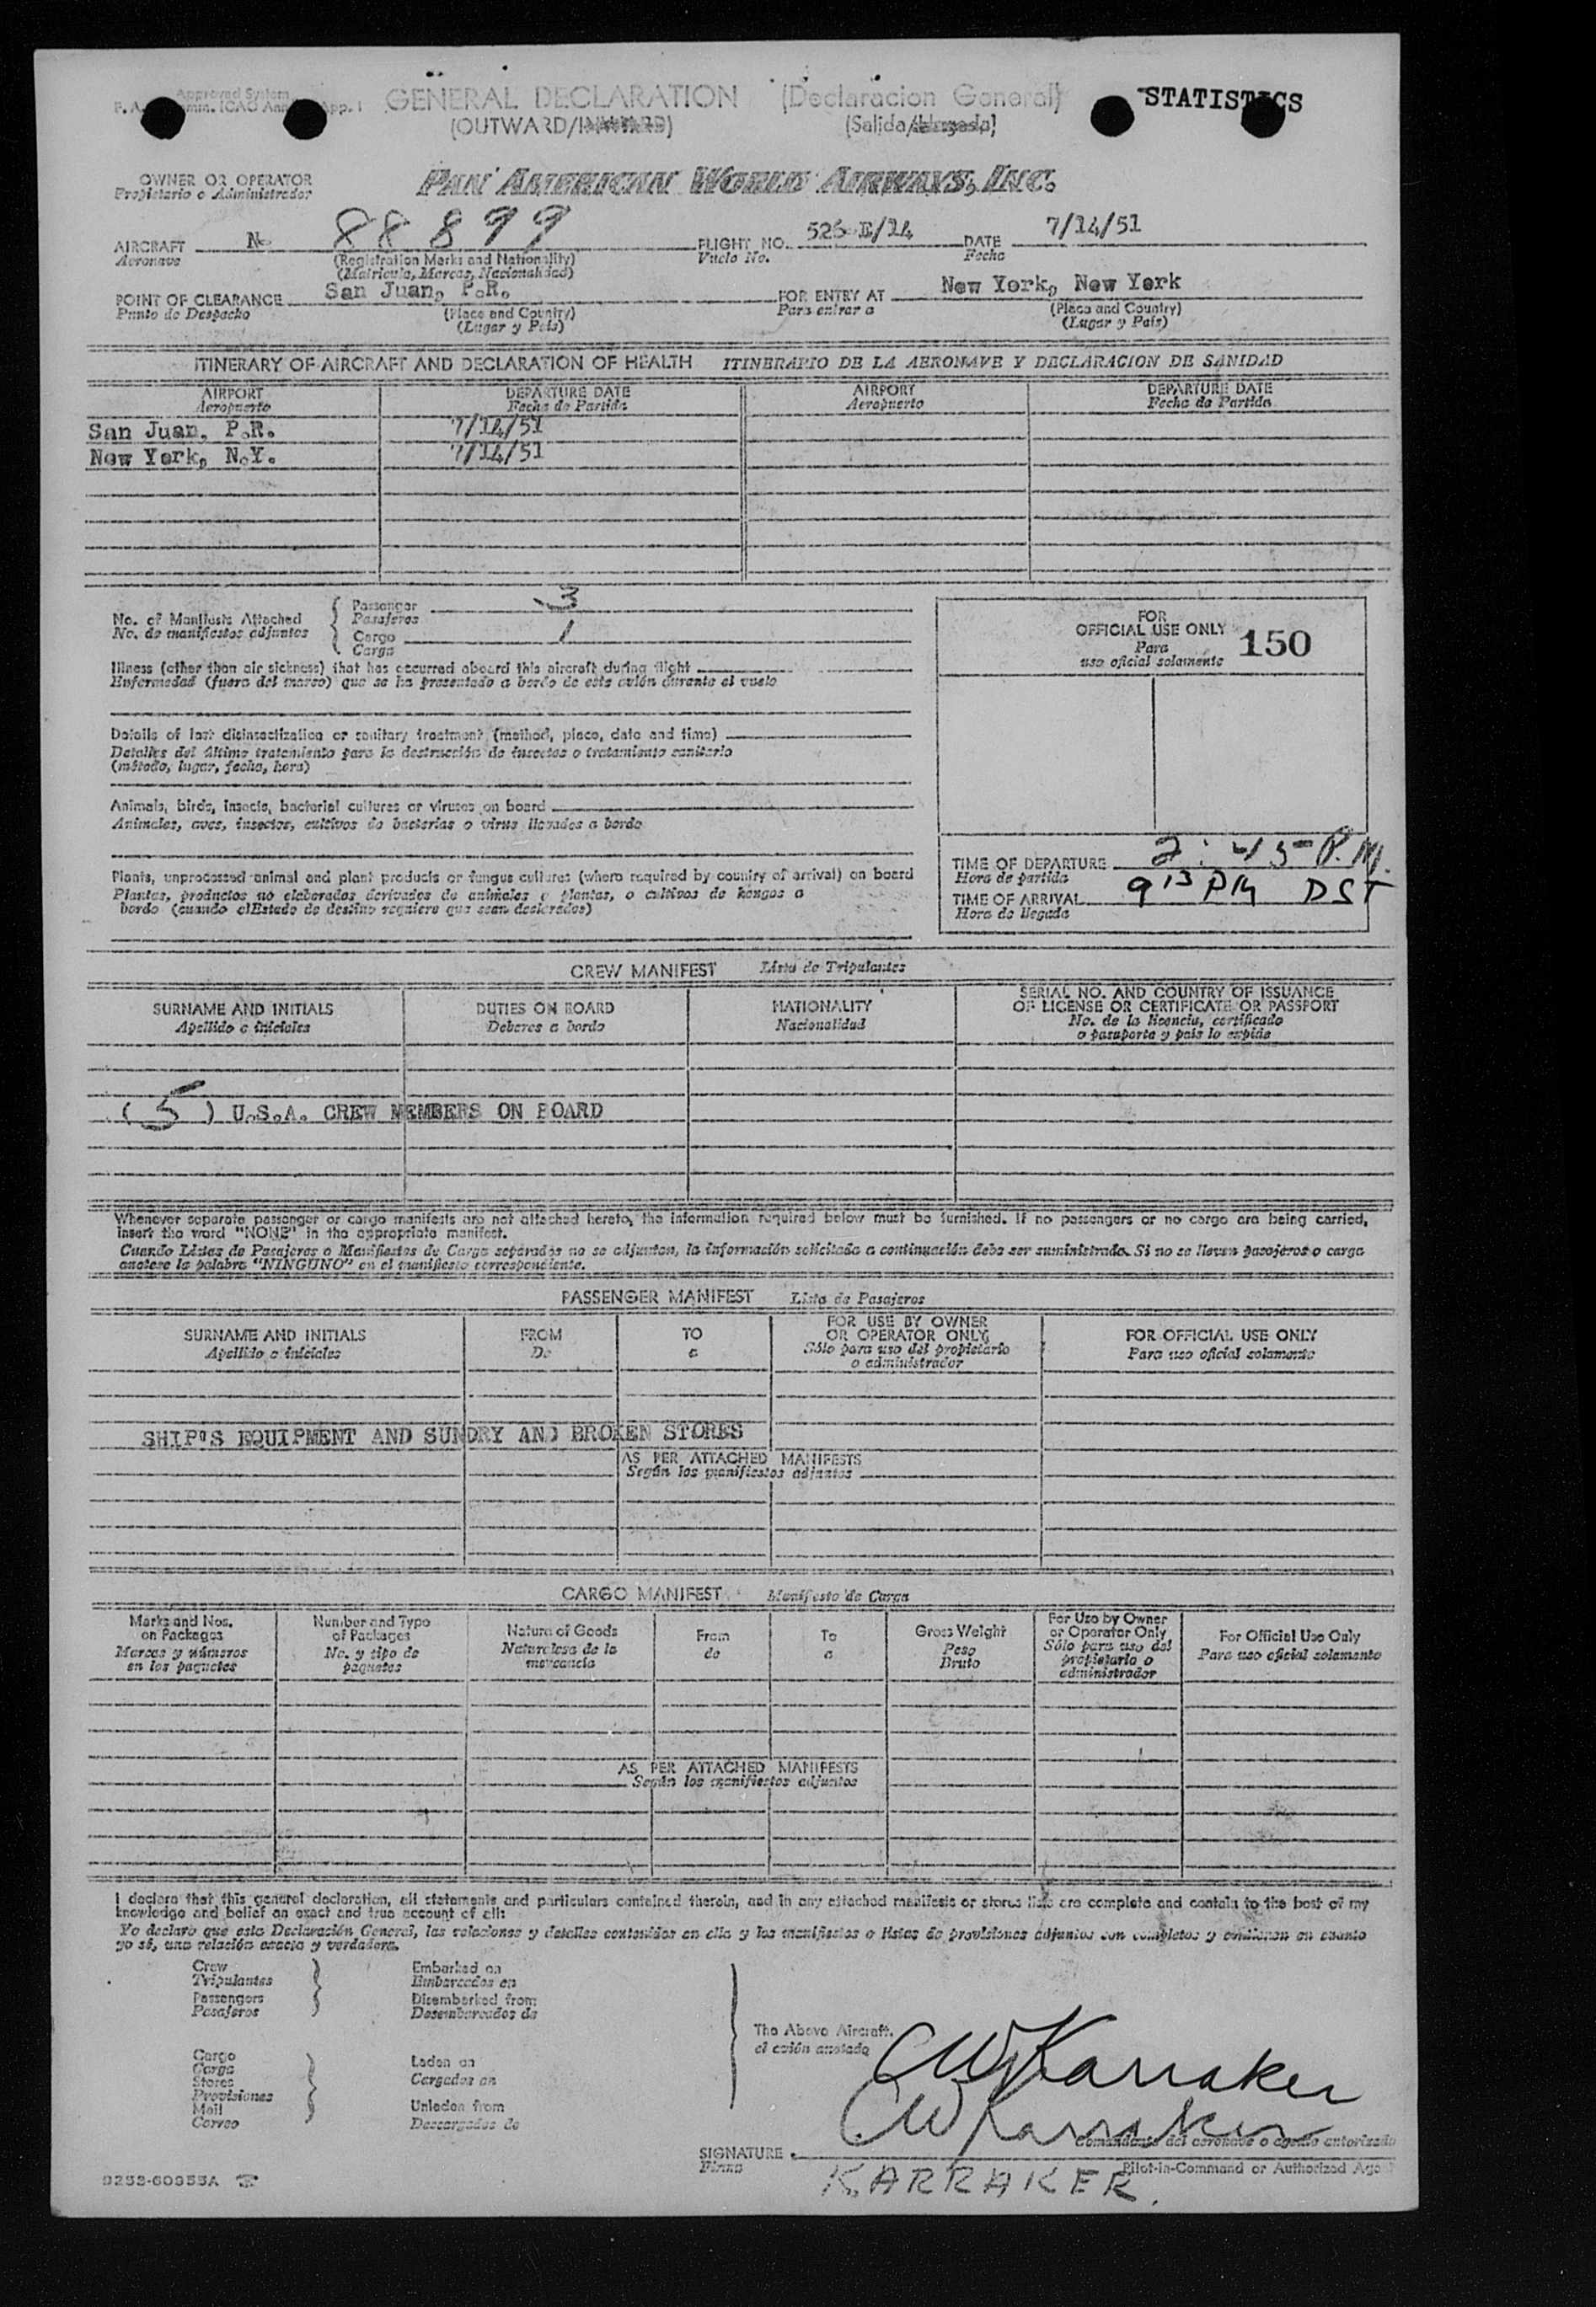 GENERAL DECLARATION (Declaracion General) STATISTICS
(OUTWARD/INWARD) (Salida/Llegada)
OWNER OR OPERATOR PAN AMERICAN WORLD AIRWAYS, INC.
Propietario o Administrador
AIRCRAFT N 88899 FLIGHT NO. 526 E/14 DATE 7/14/51
Aeronave (Registration Marks and Nationality) Vuelo No. Fecha
(Matricula, Marcas, Nacionalidad)
POINT OF CLEARANCE San Juan, P.R. FOR ENTRY AT New York, New York
Punto de Despacho (Place and Country) Para entrar a (Place and Country)
(Lugar y País) (Lugar y País)
ITINERARY OF AIRCRAFT AND DECLARATION OF HEALTH ITINERARIO DE LA AERONAVE Y DECLARACION DE SANIDAD
AIRPORT DEPARTURE DATE AIRPORT DEPARTURE DATE
Aeropuerto Fecha de Partida Aeropuerto Fecha de Partida
San Juan, P.R. 7/14/51
New York, N.Y. 7/14/51
No. of Manifests Attached Passenger 3
No. de manifiestos adjuntos Pasajeros
Cargo 1
Carga
FOR
OFFICIAL USE ONLY 150
Para
uso oficial solamente
Illness (other than air sickness) that has occurred aboard this aircraft during flight
Enfermedad (fuera del mareo) que se ha presentado a bordo de este avión durante el vuelo
Details of last disinsectization or sanitary treatment (method, place, date and time)
Detalles del último tratamiento para la destrucción de insectos o tratamiento sanitario
(método, lugar, fecha, hora)
Animals, birds, insects, bacterial cultures or viruses on board
Animales, aves, insectos, cultivos de bacterias o virus llevados a bordo
Plants, unprocessed animal and plant products or fungus cultures (where required by country of arrival) on board
Plantas, productos no elaborados derivados de animales o plantas, o cultivos de hongos a
bordo (cuando el Estado de destino requiere que sean declarados)
TIME OF DEPARTURE 2:45 P.M.
Hora de partida
TIME OF ARRIVAL 9 13 PM DST
Hora de llegada
CREW MANIFEST Lista de Tripulantes
SURNAME AND INITIALS DUTIES ON BOARD NATIONALITY SERIAL NO. AND COUNTRY OF ISSUANCE
OF LICENSE OR CERTIFICATE OR PASSPORT
Apellido e iniciales Deberes a bordo Nacionalidad No. de la licencia, certificado
o pasaporte y país lo expide
( 5 ) U.S.A. CREW MEMBERS ON BOARD
Whenever separate passenger or cargo manifests are not attached hereto, the information required below must be furnished. If no passengers or no cargo are being carried,
insert the word "NONE" in the appropriate manifest.
Cuando Listas de Pasajeros o Manifiestos de Carga separados no se adjuntan, la información solicitada a continuación debe ser suministrada. Si no se llevan pasajeros o carga
anotese la palabra "NINGUNO" en el manifiesto correspondiente.
PASSENGER MANIFEST Lista de Pasajeros
SURNAME AND INITIALS FROM TO FOR USE BY OWNER
OR OPERATOR ONLY FOR OFFICIAL USE ONLY
Apellido e iniciales De a Sólo para uso del propietario
o administrador Para uso oficial solamente
SHIP'S EQUIPMENT AND SUNDRY AND BROKEN STORES
AS PER ATTACHED MANIFESTS
Según los manifiestos adjuntos
CARGO MANIFEST Manifiesto de Carga
Marks and Nos.
on Packages
Marcas y números
en los paquetes
Number and Type
of Packages
No. y tipo de
paquetes
Nature of Goods
Naturaleza de la
mercancía
From
de
To
a
Gross Weight
Peso
Bruto
For Use by Owner
or Operator Only
Sólo para uso del
propietario o
administrador
For Official Use Only
Para uso oficial solamente
AS PER ATTACHED MANIFESTS
Según los manifiestos adjuntos
I declare that this general declaration, all statements and particulars contained therein, and in any attached manifests or stores lists are complete and contain to the best of my
knowledge and belief an exact and true account of all:
Yo declaro que esta Declaración General, las relaciones y detalles contenidos en ella y los manifiestos o listas de provisiones adjuntos son completos y contienen en cuanto
yo sé, una relación exacta y verdadera.
Crew Embarked on
Tripulantes Embarcados en
Passengers Disembarked from
Pasajeros Desembarcados de
The Above Aircraft.
el avión anotado
Cargo
Carga
Stores
Provisiones
Mail
Correo
Laden on
Cargados en
Unladen from
Descargados de
CW Karraker
CW Karraker
Comandante del aeronave o agente autorizado
SIGNATURE
Firma
Pilot-in-Command or Authorized Agent
KARRAKER.
9253-60955A